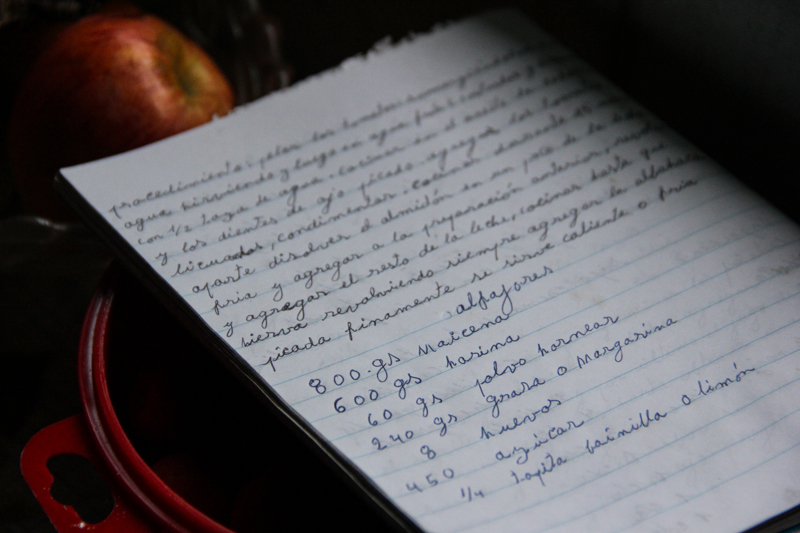 procedimiento: pelar los tomates
agua hirviendo y luego en agua fría
con 1/2 taza de agua. cocinar en el aceite
y los dientes de ajo picado. agregar los
licuados, condimentar. cocinar durante 15
aparte disolver el almidón en un poco de la leche
fría y agregar a la preparación anterior,
y agregar el resto de la leche, cocinar hasta que
hierva revolviendo siempre agregar la albahaca
picada finamente se sirve caliente o fría
alfajores
800.gs Maicena
600 gs harina
60 gs polvo hornear
240 gs grasa o margarina
8 huevos
450 azúcar
1/4 tapita vainilla o limón